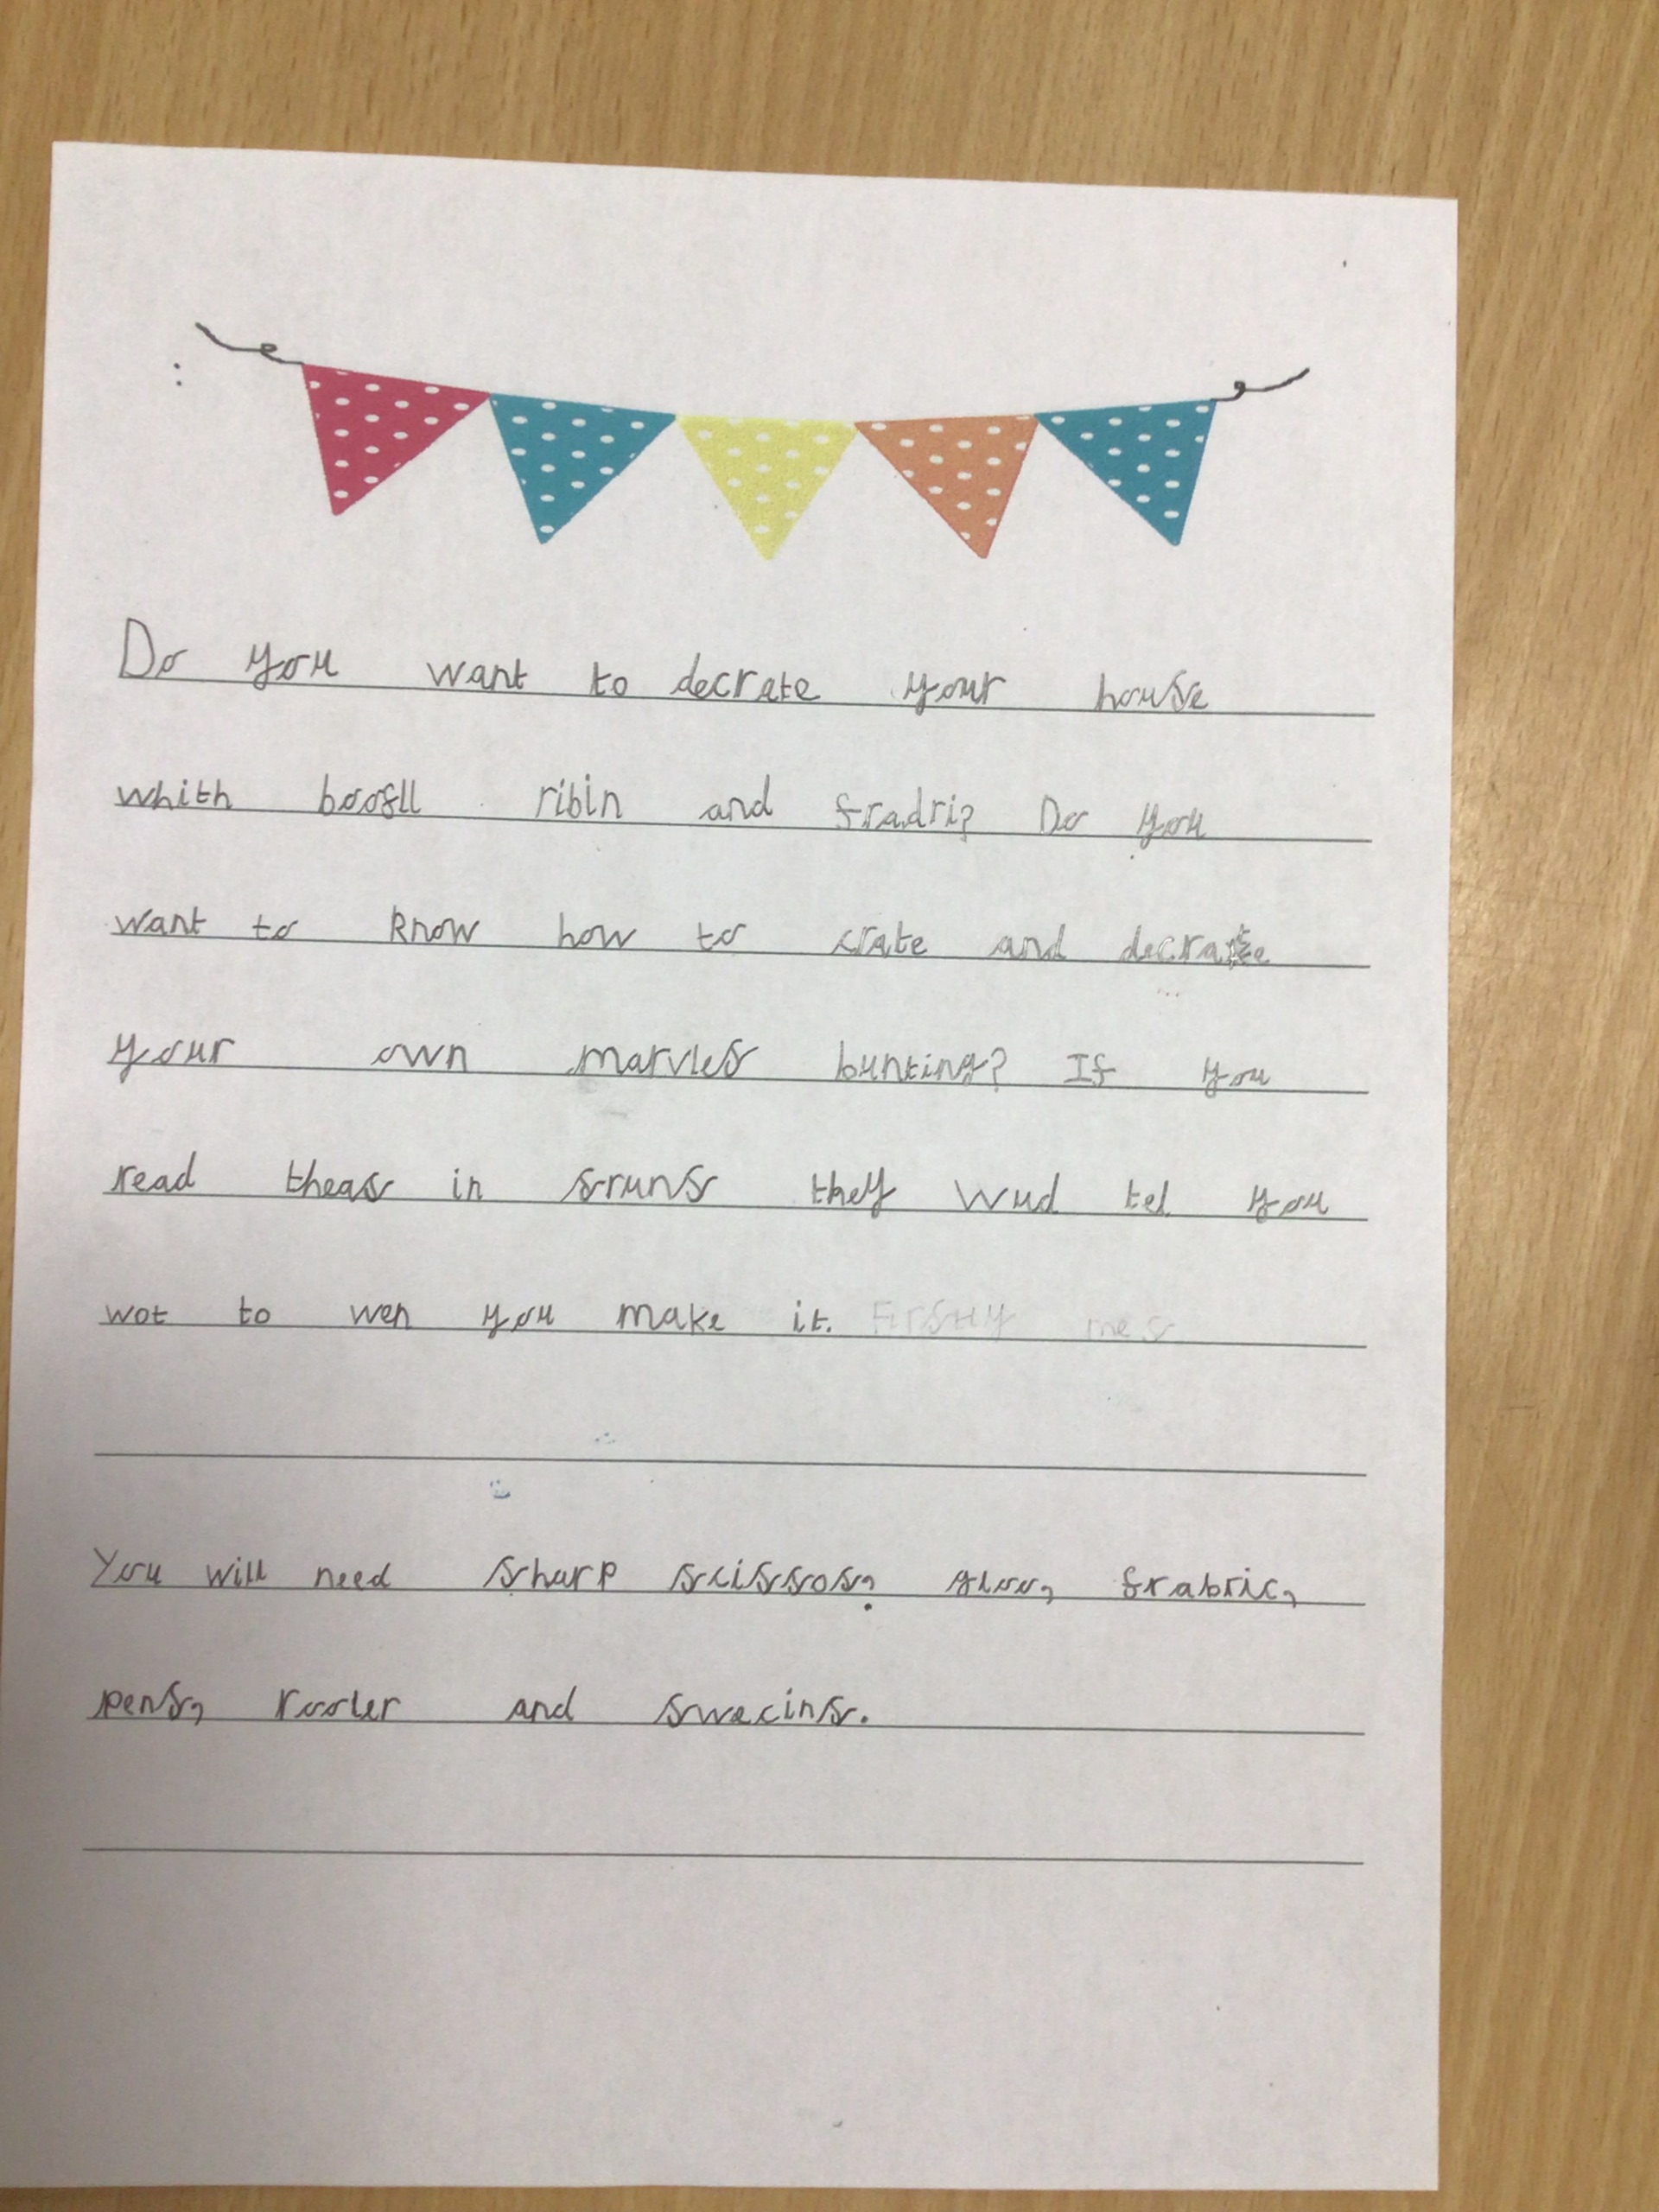 Do you want to decrate your house
whith boofll ribin and fradri? Do you
want to know how to crate and decrate
your own marvles bunting? If you
read theas in sruns they wud tel you
wot to wen you make it. Firstly mes
You will need sharp scissos, gloo, frabric,
pens, rooler and swecins.